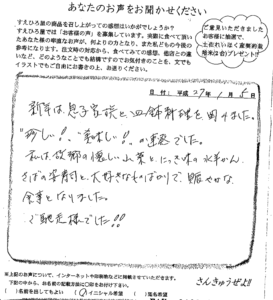 あなたのお声をお聞かせください
すえひろ屋の商品を召し上がってのご感想はいかがでしょうか？
すえひろ屋では「お声」を募集しています。実際に食べて頂い
たあなた様の率直なお声が、何よりの力となり、また私どもの今後の
参考になります。注文時の対応から、食べてみての感想、他店との違
いなど、どのようなことでも結構ですのでお気付きのことを、文でも
イラストでもご自由にお書きの上、お送りください。
ご意見いただきました
お客様に抽選で、
平成27年1月5日
新年は息子家族と皿鉢料理を囲みました。
"珍しい！"、"美味しい！"が連発でした。
私は故郷の懐しい山菜と、にっき味の水羊かん、
さばの姿寿司と、大好きなものばかりで、賑やかな
食事となりました。
ご馳走様でした!!
※上記のお声について、インターネットや印刷物などに掲載させていただきます。
下記の中から、お名前の記載方法に○印をお付け下さい。
）名前を出してもよい
）イニシャル希望
）匿名希望
さんきゅうぜよ!!